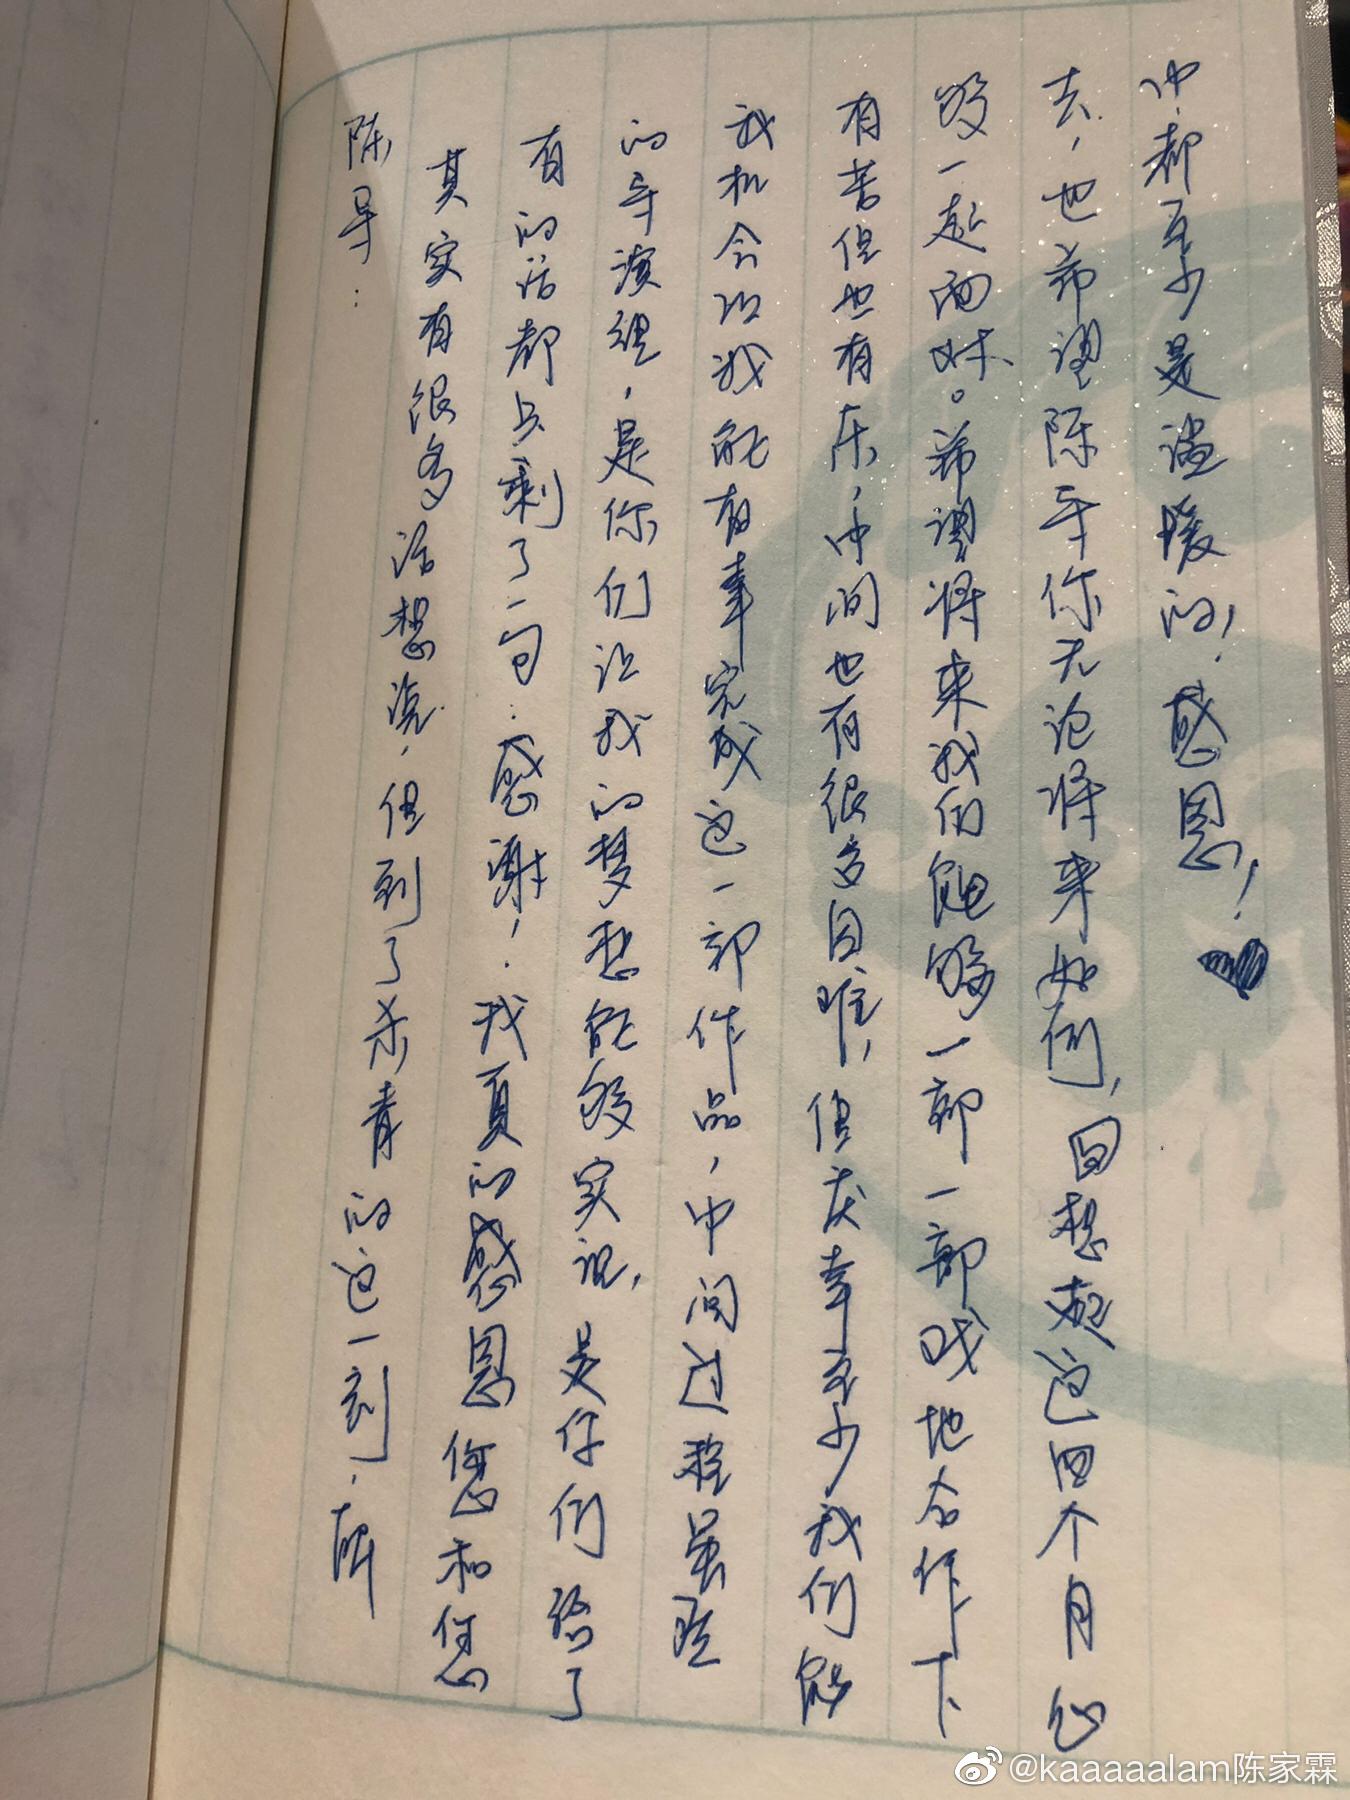 陈导：
其实有很多话想说，但到了杀青的这一刻，所
有的话都只剩了一句：感谢！我真的感恩您和您
的导演组，是你们让我的梦想能够实现，是你们给了
我机会让我能有幸完成这一部作品，中间过程虽然
有苦但也有乐，中间也有很多困难，但庆幸至少我们能
够一起面对。希望将来我们能够一部一部戏地合作下
去，也希望陈导你无论将来如何，回想起这四个月心
中，都至少是温暖的！感恩！
@kaaaaalam陈家霖